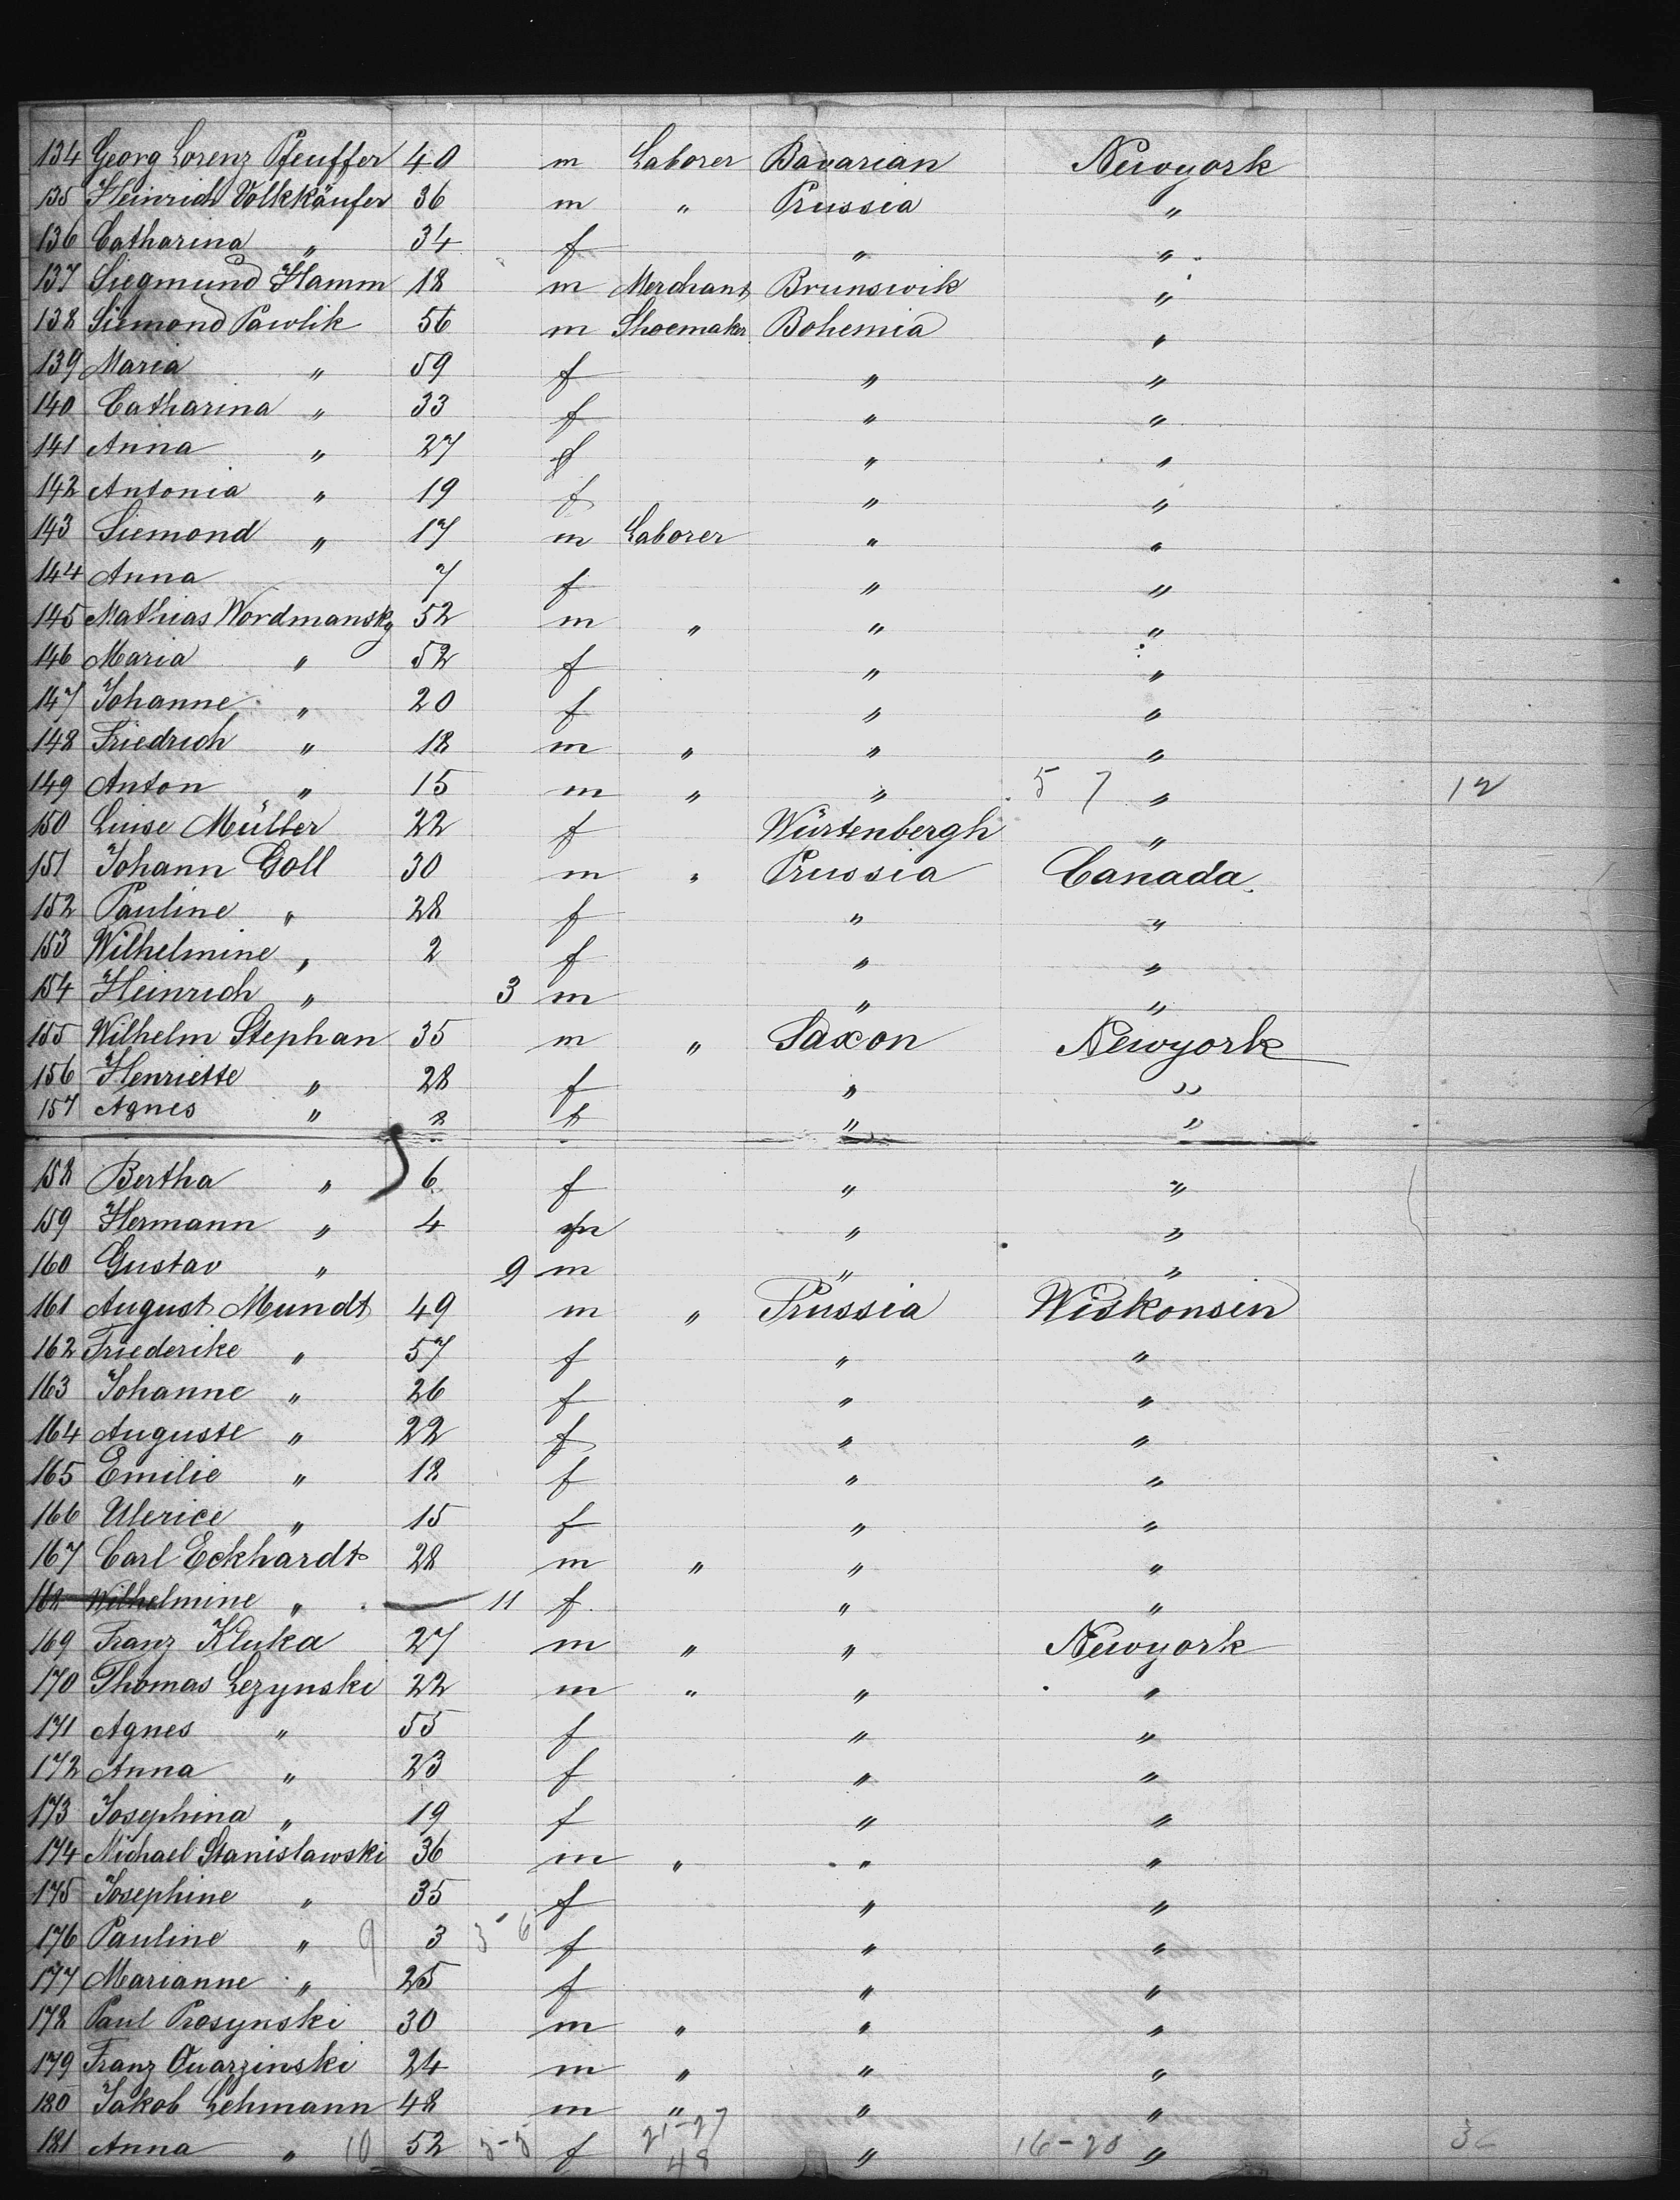 134 Georg Lorenz Pfeuffer 40 m Laborer Bavarian Newyork
135 Heinrich Volkkäufer 36 m " Prussia "
136 Catharina " 34 f " "
137 Siegmund Hamm 18 m Merchant Brunswik "
138 Siemond Pawlik 56 m Shoemaker Bohemia "
139 Maria " 59 f " "
140 Catharina " 33 f " "
141 Anna " 27 f " "
142 Antonia " 19 f " "
143 Siemond " 17 m Laborer " "
144 Anna 7 f " "
145 Mathias Wordmansky 52 m " " "
146 Maria " 52 f " "
147 Johanne " 20 f " "
148 Friedrich " 18 m " " "
149 Anton " 15 m " " 5 7 " 12
150 Luise Müller 22 f Würtenbergh "
151 Johann Goll 30 m " Prussia Canada
152 Pauline " 28 f " "
153 Wilhelmine " 2 f " "
154 Heinrich " 3 m " "
155 Wilhelm Stephan 35 m " Saxon Newyork
156 Henriette " 28 f " "
157 Agnes " 8 f " "
158 Bertha " 6 f " "
159 Hermann " 4 m " "
160 Gustav " 9 m " "
161 August Mundt 49 m " Prussia Wiskonsin
162 Friederike " 57 f " "
163 Johanne " 26 f " "
164 Auguste " 22 f " "
165 Emilie " 18 f " "
166 Ulerice " 15 f " "
167 Carl Eckhardt 28 m " " "
168 Wilhelmine " 11 f " "
169 Franz Kluka 27 m " " Newyork
170 Thomas Lezynski 22 m " " "
171 Agnes " 55 f " "
172 Anna " 23 f " "
173 Josephina " 19 f " "
174 Michael Stanislawski 36 m " " "
175 Josephine " 35 f " "
176 Pauline " 9 3 3 6 f " "
177 Marianne " 25 f " "
178 Paul Prosynski 30 m " " "
179 Franz Quarzinski 24 m " " "
180 Jakob Lehmann 48 m " " "
21-27
181 Anna " 10 52 5-5 f 48 " 16-20 "